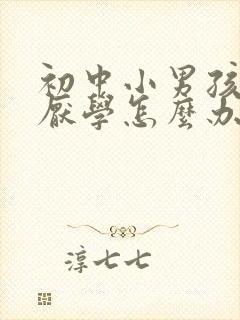 初中小男孩
厭學怎麼办
淳七七